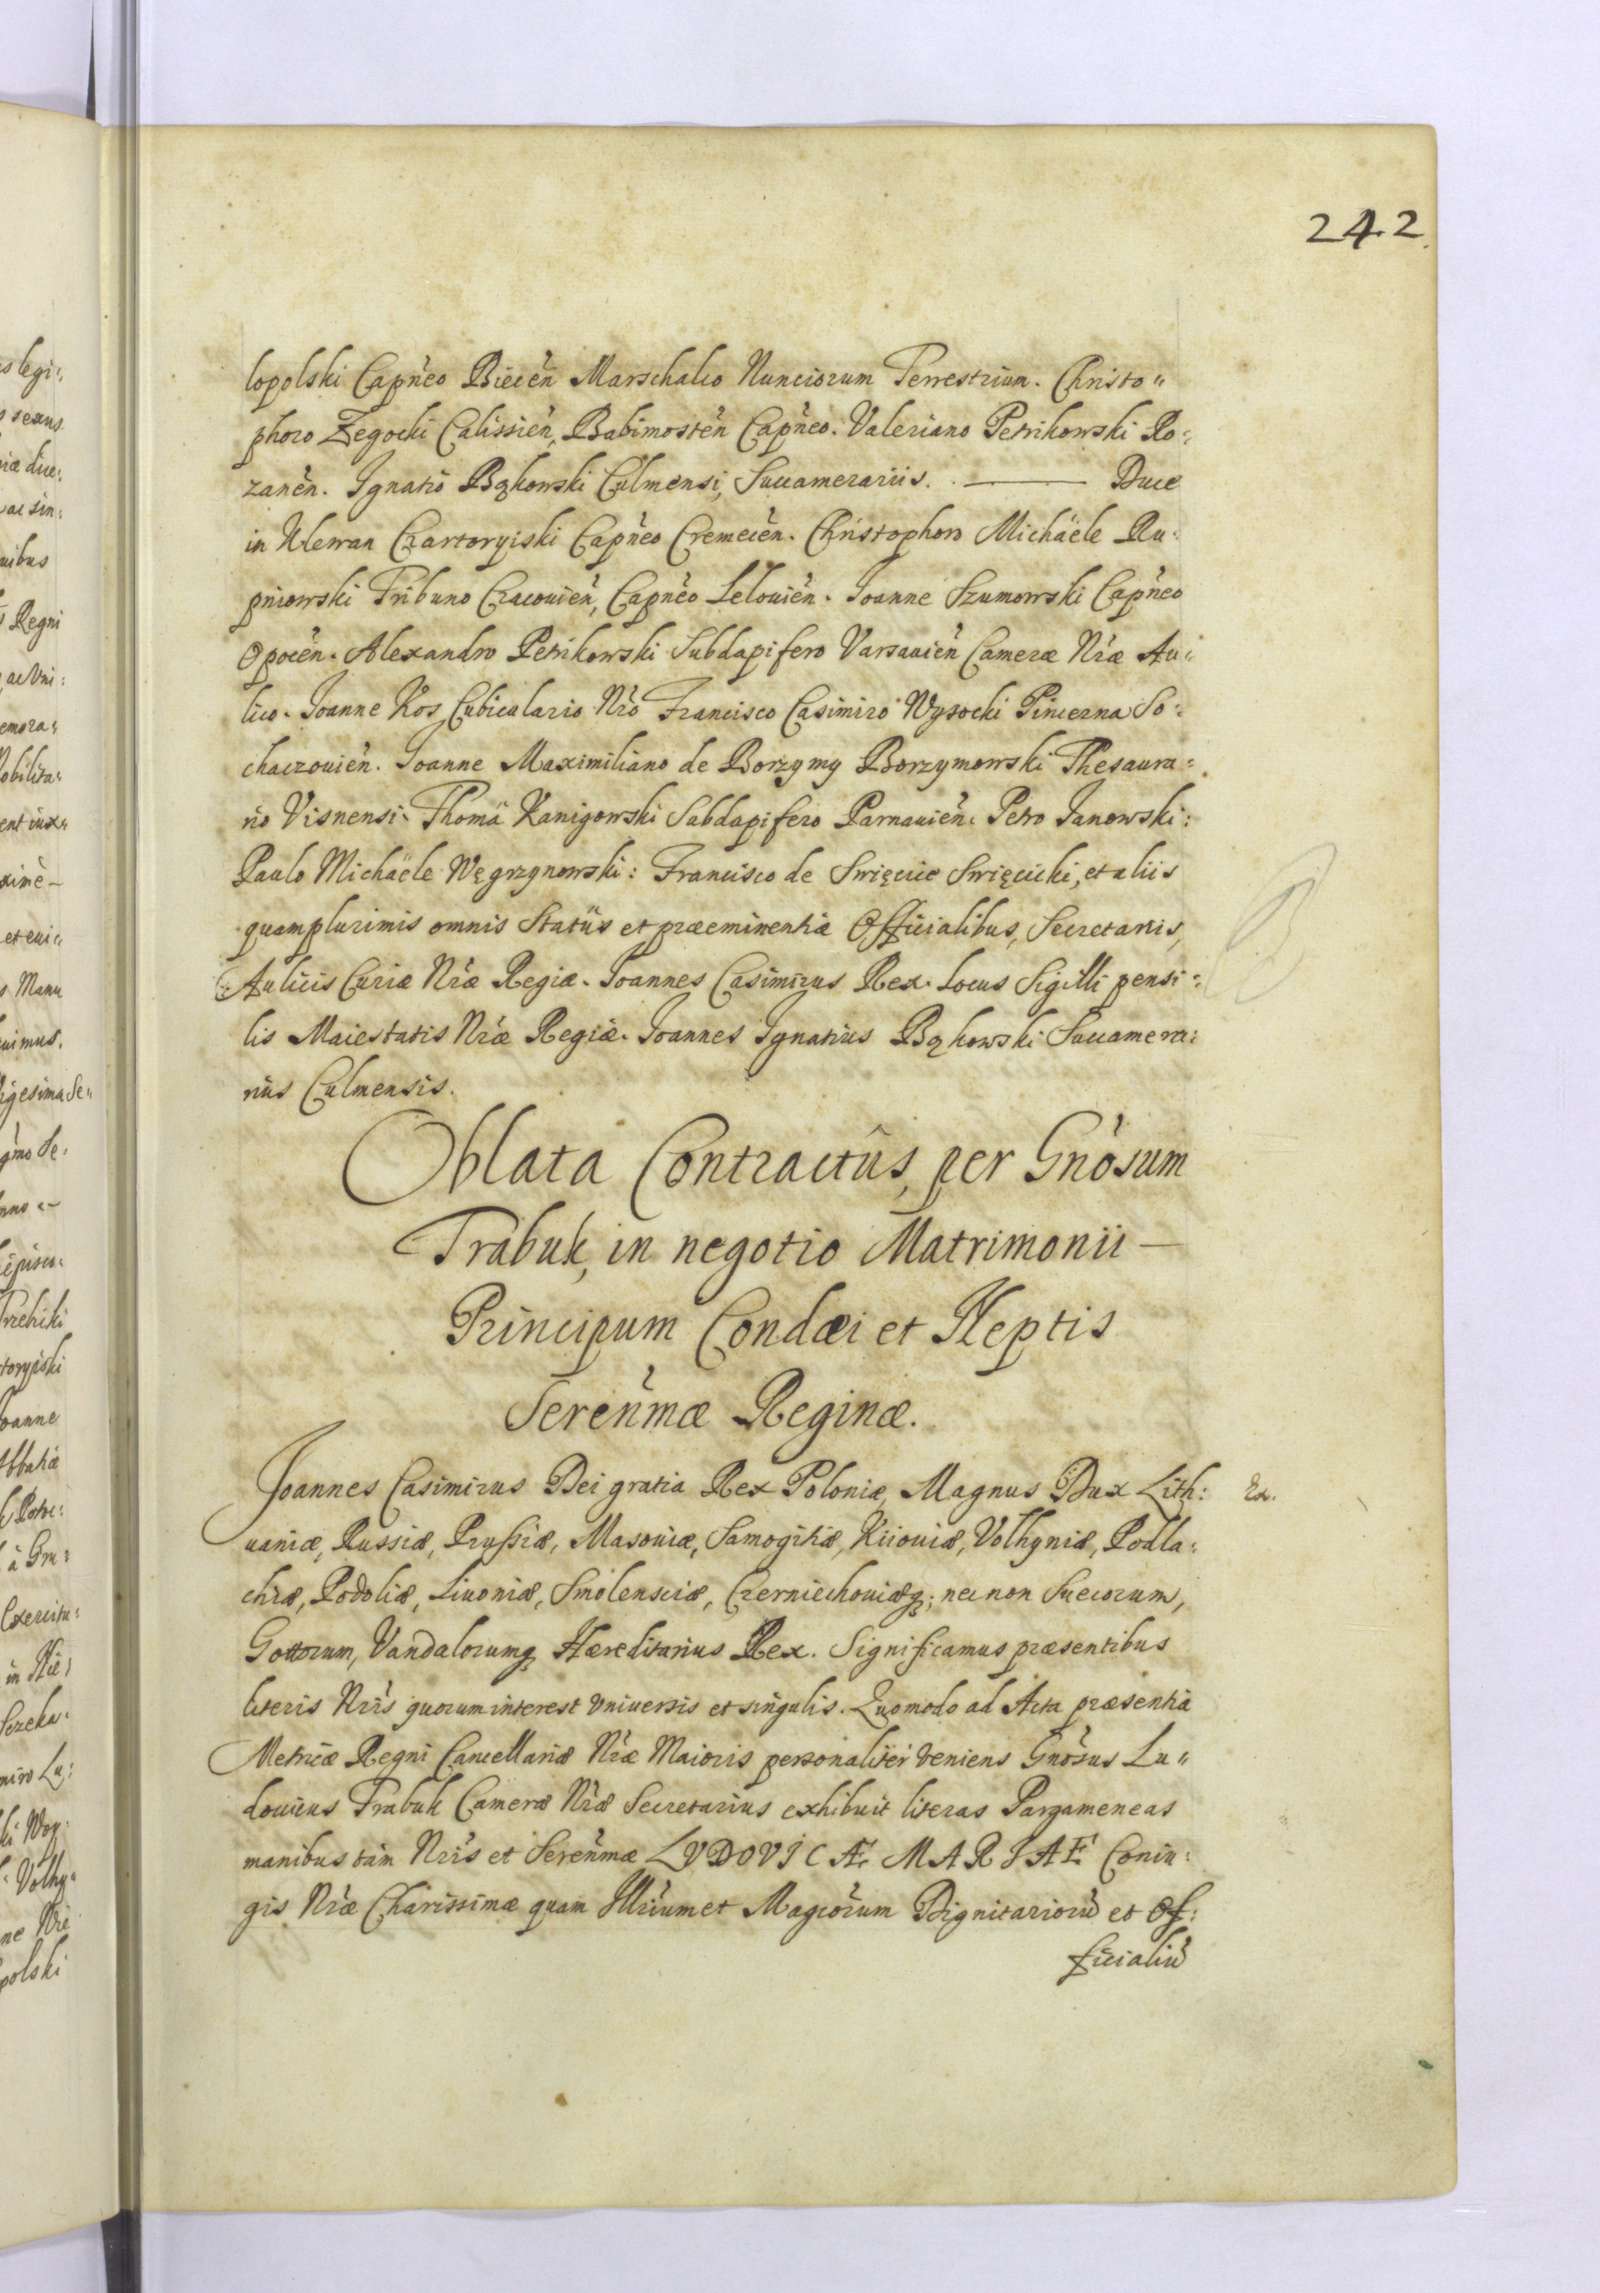 242
lopolski Capneo Biecen Marschalco Nunciorum Terrestrium. Christo„
phoro Żegocki Calissien, Babimosten Capneo. Valeriano Petrikowski Ro:
zanen. Ignatio Bąkowski Culmensi, Succamerariis. ——— Duce
in Klewan Czartoryiski Capneo Cremecen. Christophoro Michäele Ru:
pniowski Tribuno Cracovien, Capneo Lelouien. Joanne Szumowski Capneo
Opocen. Alexandro Petrikowski Subdapifero Varsauien Cameræ Nræ Au:
lico. Joanne Kos Cubiculario Nro Francisco Casimiro Wysocki Pincerna So:
chaczouien. Joanne Maximiliano de Borzymy Borzymowski Thesaura:
rio Visnensi. Thomä Kanigowski Subdapifero Parnauien. Petro Janowski:
Paulo Michäele Węgrzynowski: Francisco de Swięcice Swięcicki, et aliis
quamplurimis omnis Statûs et præeminentiæ Officialibus, Secretariis,
Aulicis Curiæ Nræ Regiæ. Joannes Casimirus Rex. Locus Sigilli pensi:
lis Maiestatis Nræ Regiæ. Joannes Ignatius Bąkowski Succamera:
rius Culmensis.
Oblata Contractûs, per Gnosum
Trabuk, in negotio Matrimonii —
Principum Condæi et Neptis
Serenmæ Reginæ.
Joannes Casimirus Dei gratia Rex Poloniæ, Magnus Dux Lith: Ex.
uaniæ, Russiæ, Prussiæ, Masouiæ, Samogitiæ, Kiiouiæ, Volhyniæ, Podla:
chiæ, Podoliæ, Liuoniæ, Smolensciæ, Czerniechouiæq; nec non Suecorum,
Gottorum, Vandalorumq Hæreditarius Rex. Significamus præsentibus
literis Nris quorum interest vniuersis et singulis. Quomodo ad Acta præsentia
Metricæ Regni Cancellariæ Nræ Maioris personaliter veniens Gnosus Lu„
douicus Trabuk Cameræ Nræ Secretarius exhibuit literas Pargameneas
manibus tam Nris et Serenmæ LVDOVICÆ MARIAE Coniu:
gis Nræ Charissimæ quam Illrium et Magcorum Dignitariorũ et Of:
ficialiũ